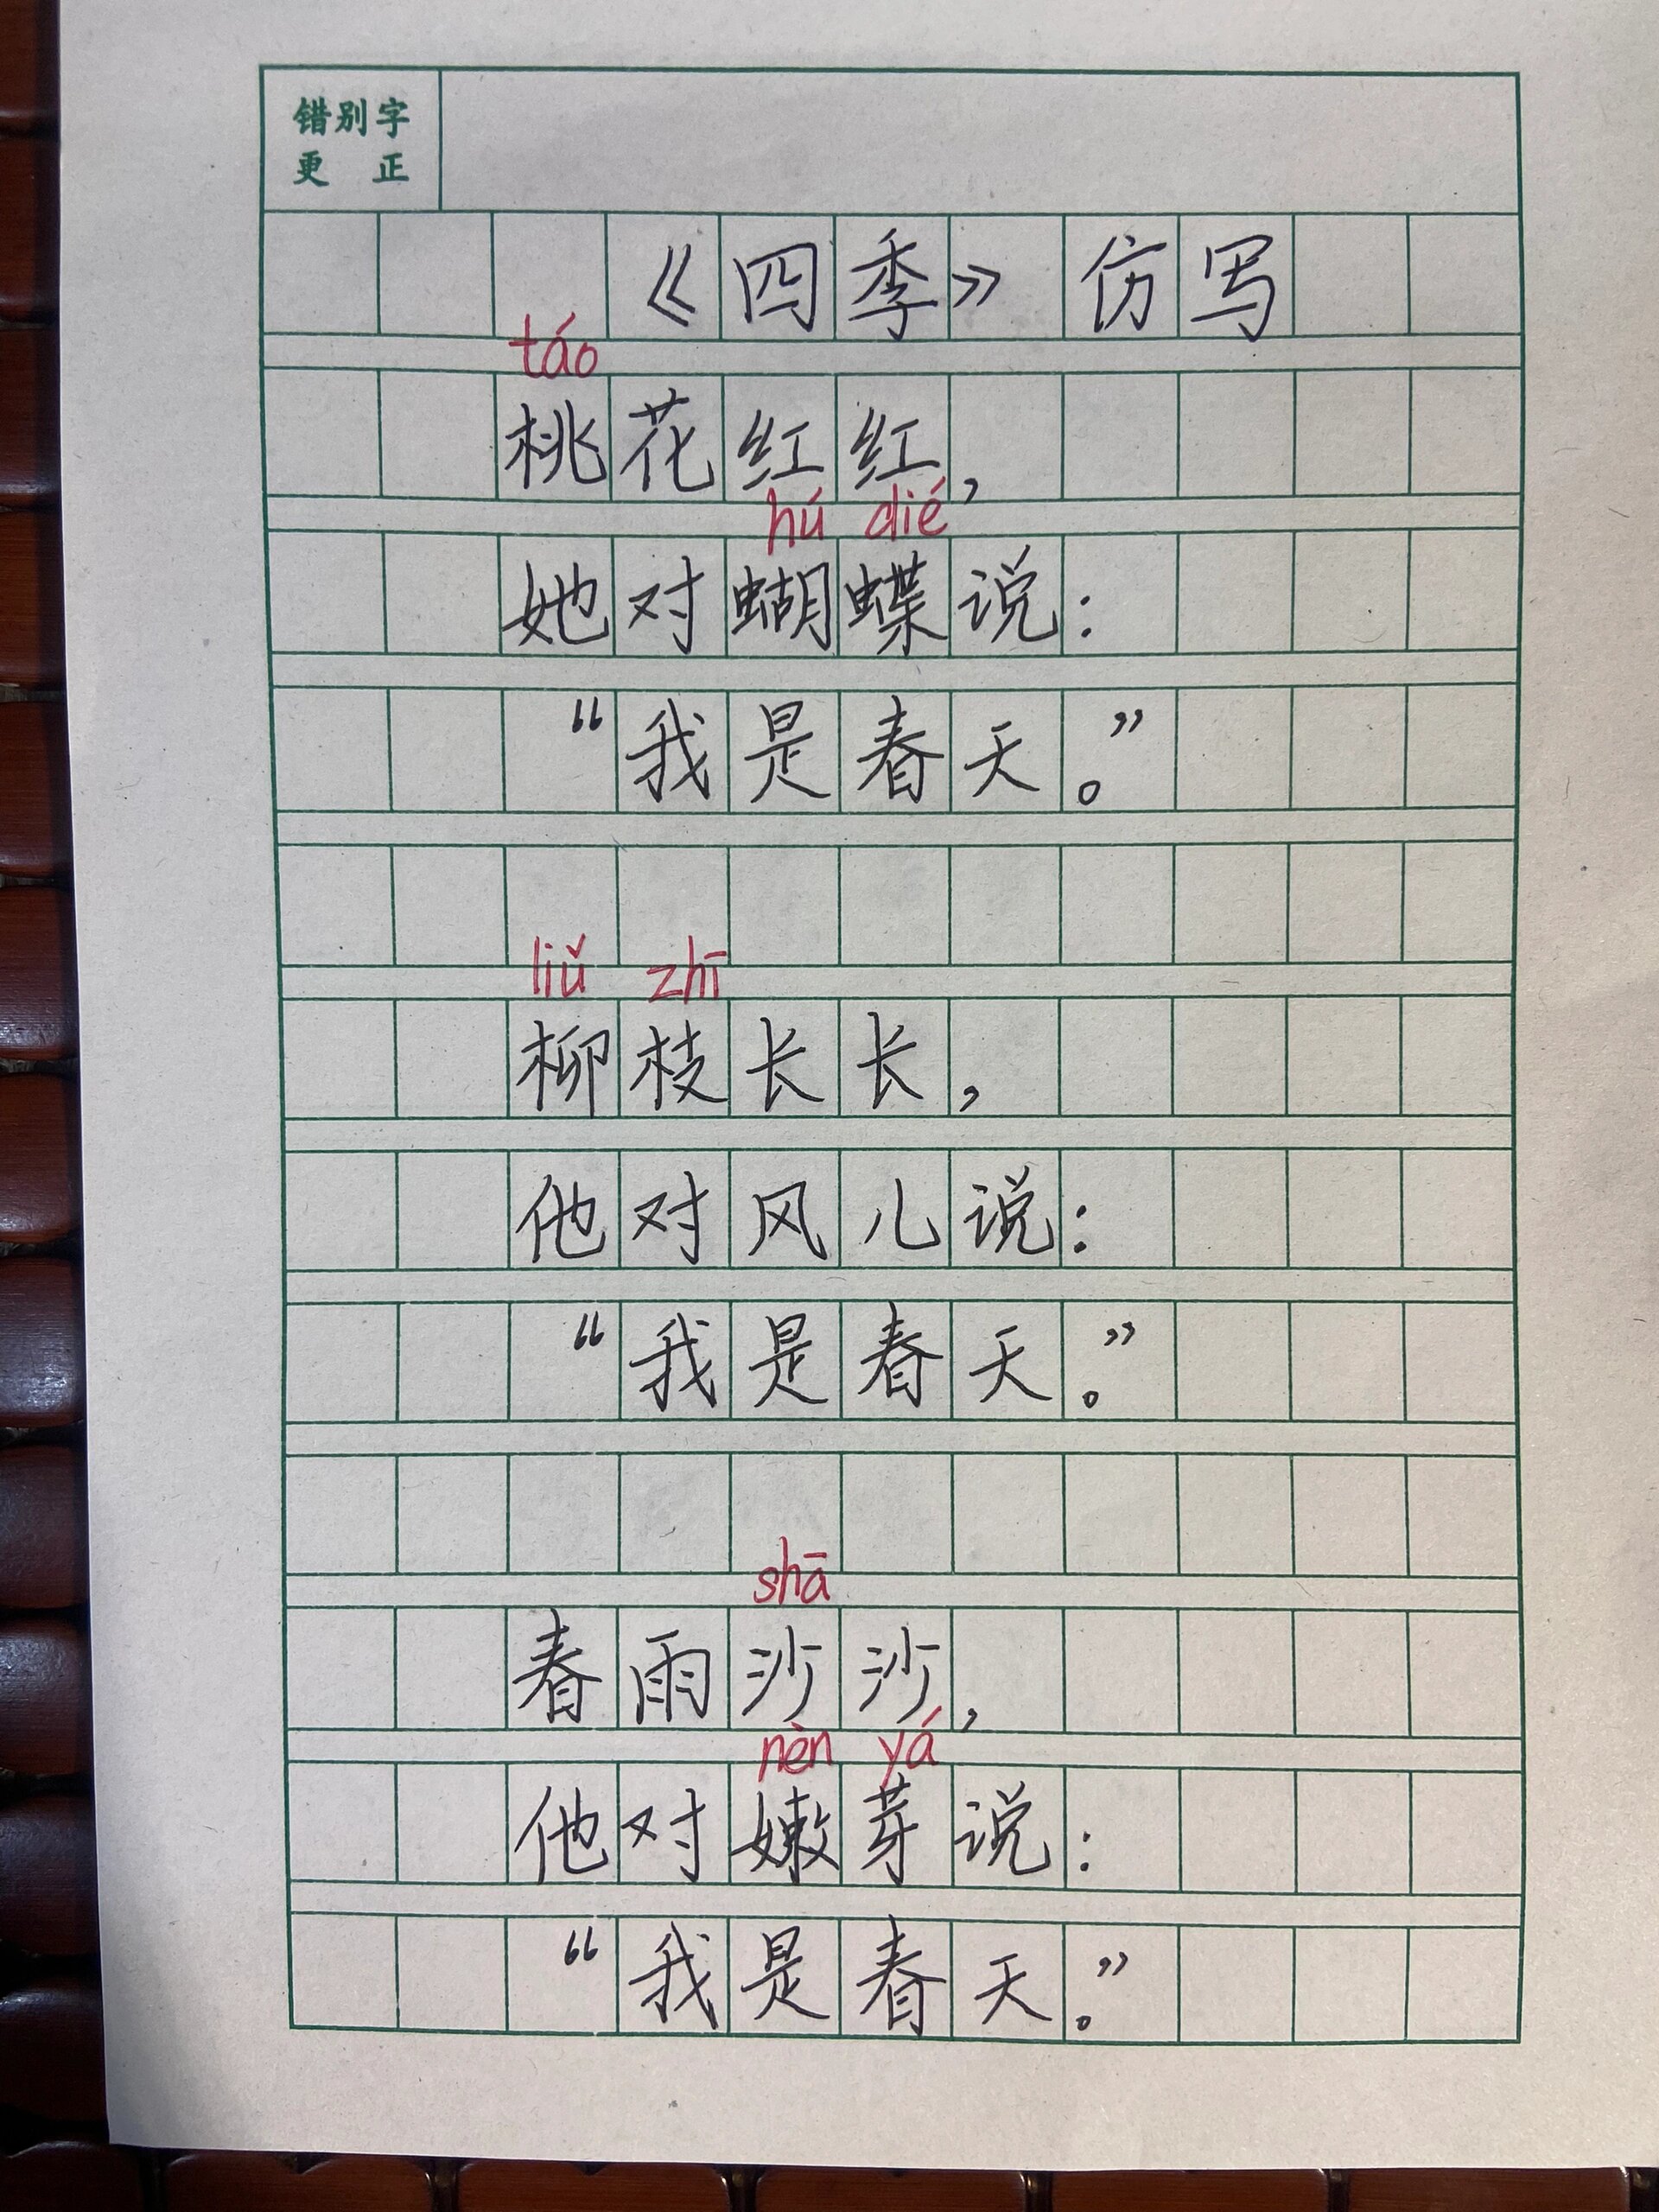 错别字
更 正
《四季》仿写
táo
桃花红红，
hú dié
她对蝴蝶说：
“我是春天。”
liǔ zhī
柳枝长长，
他对风儿说：
“我是春天。”
shā
春雨沙沙，
nèn yá
他对嫩芽说：
“我是春天。”